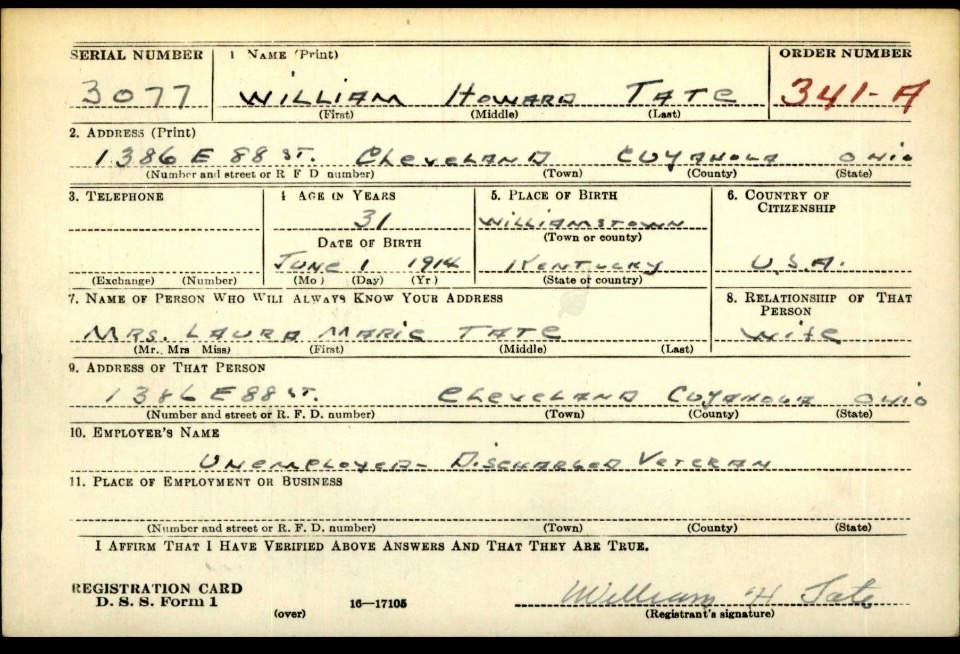 SERIAL NUMBER 1 NAME (Print) ORDER NUMBER
3077 WILLIAM HOWARD TATE 341-A
(First) (Middle) (Last)
2. ADDRESS (Print)
1386 E 88 ST. CLEVELAND CUYAHOGA OHIO
(Number and street or R F D number) (Town) (County) (State)
3. TELEPHONE 4 AGE IN YEARS 5. PLACE OF BIRTH 6. COUNTRY OF
CITIZENSHIP
31 WILLIAMSTOWN
DATE OF BIRTH (Town or county)
JUNE 1 1914 KENTUCKY U.S.A.
(Exchange) (Number) (Mo) (Day) (Yr) (State or country)
7. NAME OF PERSON WHO WILL ALWAYS KNOW YOUR ADDRESS 8. RELATIONSHIP OF THAT
PERSON
MRS. LAURA MARIE TATE WIFE
(Mr. Mrs Miss) (First) (Middle) (Last)
9. ADDRESS OF THAT PERSON
1386 E 88 ST. CLEVELAND CUYAHOGA OHIO
(Number and street or R. F. D. number) (Town) (County) (State)
10. EMPLOYER'S NAME
UNEMPLOYED- DISCHARGED VETERAN
11. PLACE OF EMPLOYMENT OR BUSINESS
(Number and street or R. F. D. number) (Town) (County) (State)
I AFFIRM THAT I HAVE VERIFIED ABOVE ANSWERS AND THAT THEY ARE TRUE.
REGISTRATION CARD
D. S. S. Form 1 (over) 16—17105 William H Tate
(Registrant's signature)